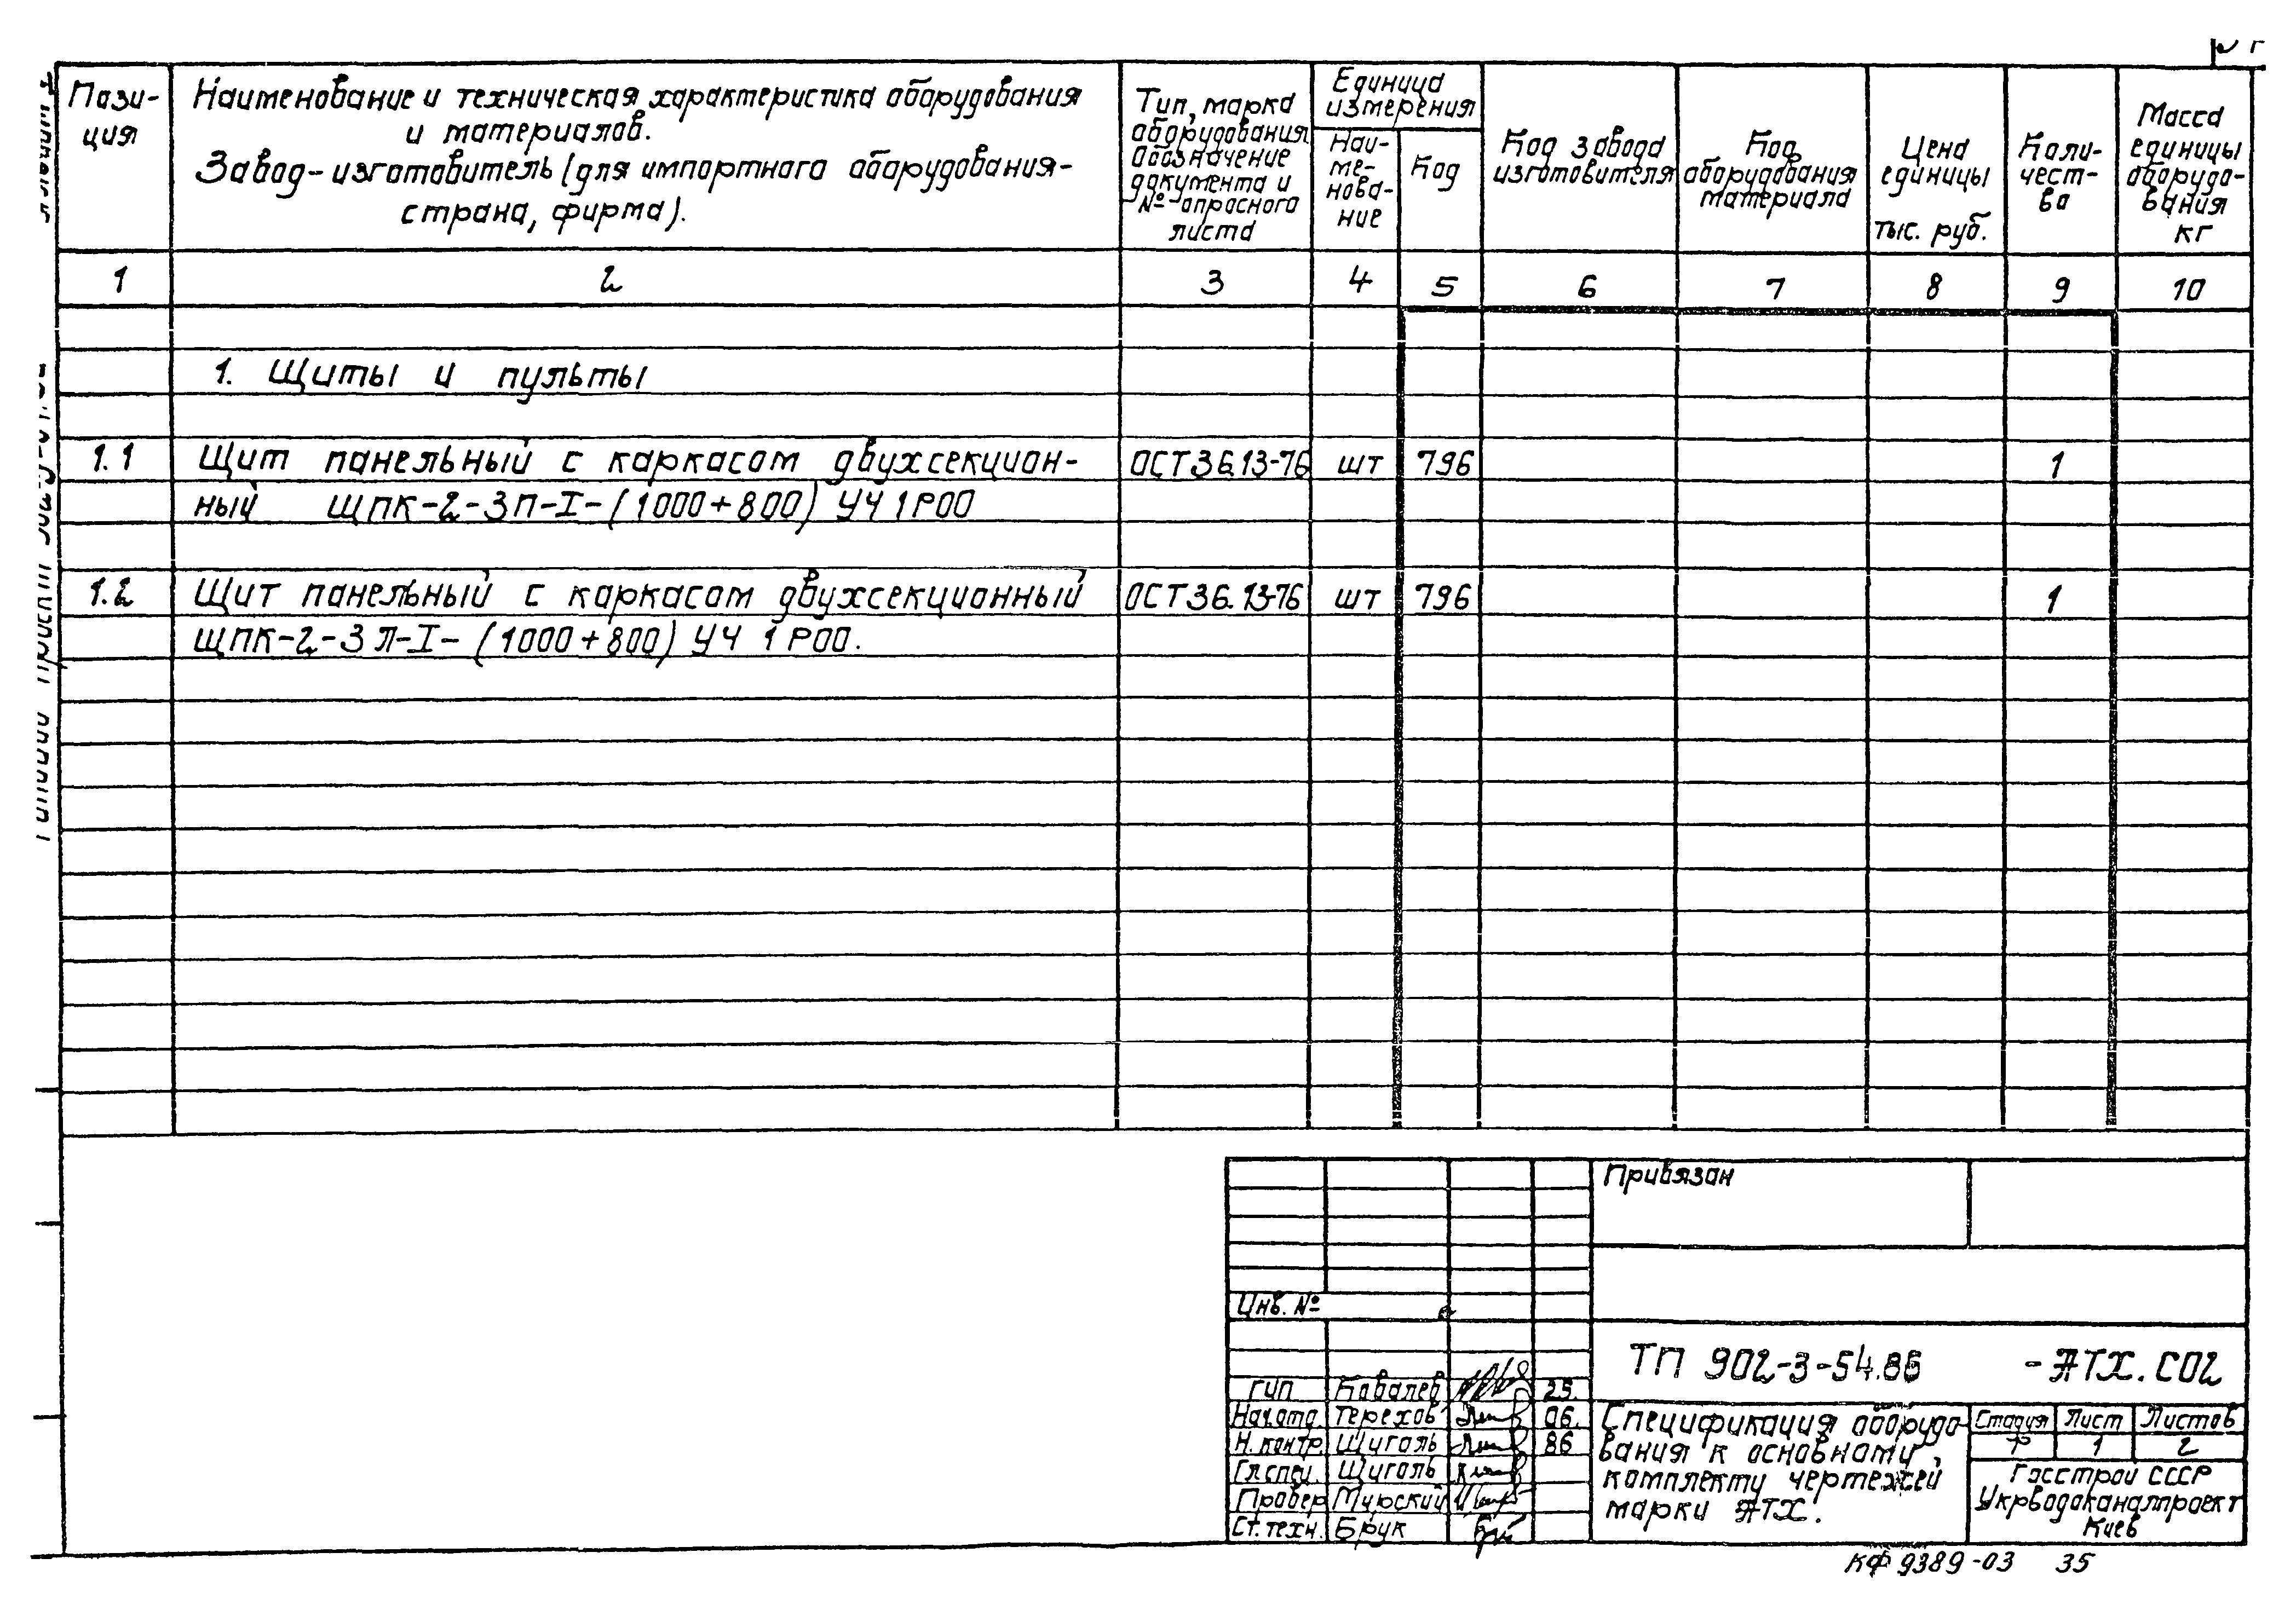 Пози-
ция
Наименование и техническая характеристика оборудования
и материалов.
Завод-изготовитель (для импортного оборудования-
страна, фирма).
Тип, марка
оборудования
Обозначение
документа и
№ опросного
листа
Единица
измерения
Наи-
ме-
нова-
ние
Код
Код завода
изготовителя
Код
оборудования
материала
Цена
единицы
тыс. руб.
Коли-
чест-
во
Масса
единицы
оборудо-
вания
кг
1 2 3 4 5 6 7 8 9 10
1. Щиты и пульты
1.1 Щит панельный с каркасом двухсекцион- ОСТ36.13-76 шт 796 1
ный ЩПК-2-3П-I-(1000+800) УЧ 1Р00
1.2 Щит панельный с каркасом двухсекционный ОСТ36.13-76 шт 796 1
ЩПК-2-3Л-I-(1000+800) УЧ 1Р00.
Привязан
Инв. №
ТП 902-3-54.86 -АТХ.СО2
ГИП Ковалев 25.
Нач.отд. Терехов 06.
Н.контр. Щиголь 86
Гл.спец. Щиголь
Провер Мирский
Ст.техн. Брук
Спецификация оборудо-
вания к основному
комплекту чертежей
марки АТХ.
Стадия Лист Листов
Р 1 2
Госстрой СССР
Укрводоканалпроект
Киев
КФ 9389-03 35